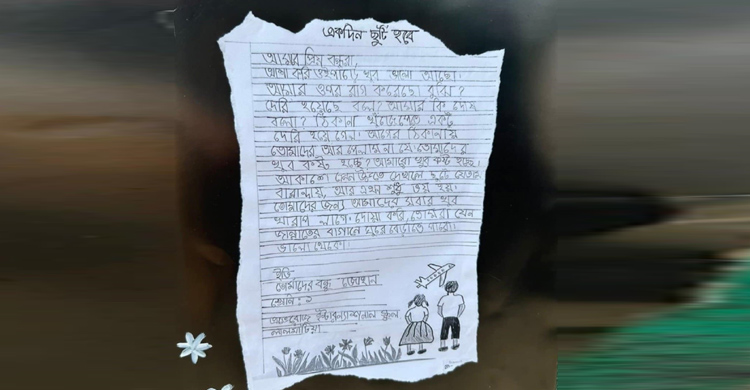 একদিন ছুটি হবে
আমার প্রিয় বন্ধুরা,
আশা করি ওইপাড়ে খুব ভালো আছো।
আমার ওপর রাগ করেছো বুঝি?
দেরি হয়েছে বলে? আমার কি দোষ
বলো? ঠিকানা খুঁজে পেতে একটু
দেরি হয়ে গেল। আগের ঠিকানায়
তোমাদের আর পেলাম না যে। তোমাদের
খুব কষ্ট হচ্ছে? আমারো খুব কষ্ট হচ্ছে।
আকাশে প্লেন উড়তে দেখলে ছুটে যেতাম
বারান্দায়, আর এখন শুধু ভয় হয়।
তোমাদের জন্য আমাদের সবার খুব
খারাপ লাগে। দোয়া করি, তোমরা যেন
জান্নাতের বাগানে ঘুরে বেড়াতে পারো।
ভালো থেকো।
ইতি
তোমাদের বন্ধু
শ্রেণি: ১
ইন্টারন্যাশনাল স্কুল
লালমাটিয়া